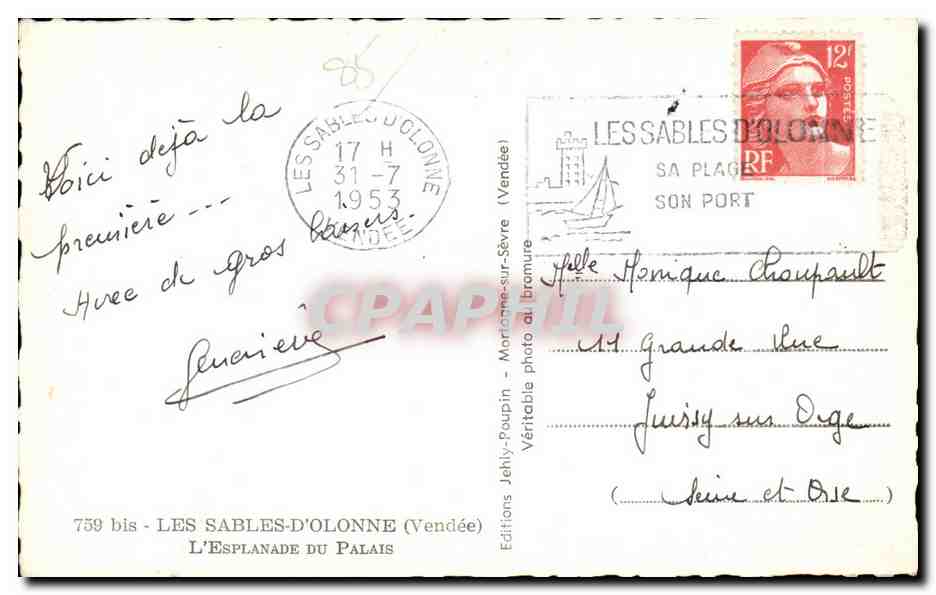 85
Voici déjà la
première ---
Avec de gros baisers.
Geneviève
759 bis - LES SABLES-D'OLONNE (Vendée)
L'ESPLANADE DU PALAIS
LES SABLES D'OLONNE
17 H
31 -7
1953
VENDÉE
Editions Jehly-Poupin - Mortagne-sur-Sèvre (Vendée)
Véritable photo au bromure
12F
POSTES
RF
LES SABLES D'OLONNE
SA PLAGE
SON PORT
Melle Monique Choupault
11 Grande Rue
Juvisy sur Orge
(Seine et Oise)
CPAPHIL